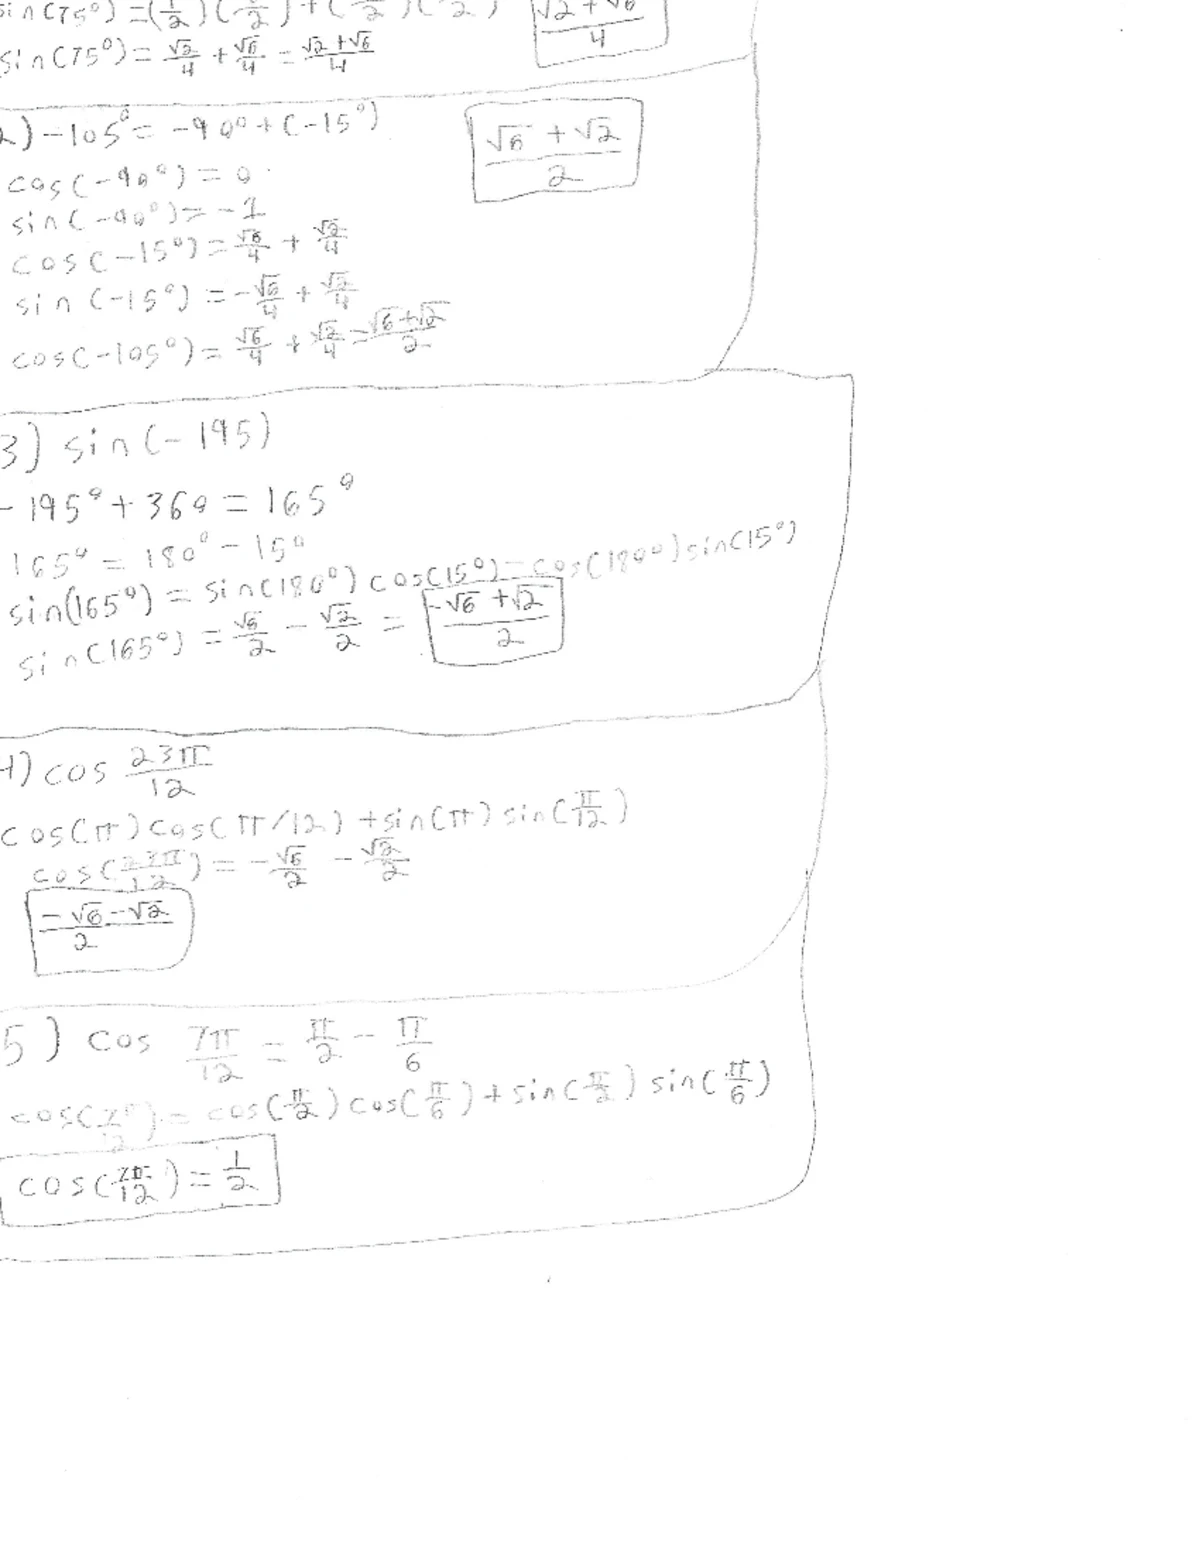 sin(75°) = (1/2)(√2/2) + (√3/2)(√2/2)
√2+√6/4
sin(75°) = √2/4 + √6/4 = √2+√6/4
2) -105° = -90° + (-15°)
√6 + √2/2
cos(-90°) = 0
sin(-90°) = -1
cos(-15°) = √6/4 + √2/4
sin(-15°) = -√6/4 + √2/4
cos(-105°) = √6/4 + √2/4 = √6+√2/2
3) sin(-195)
-195° + 360 = 165°
165° = 180° - 15°
sin(165°) = sin(180°) cos(15°) - cos(180°) sin(15°)
sin(165°) = √6/2 - √2/2 = -√6 + √2/2
4) cos 23π/12
cos(π) cos(π/12) + sin(π) sin(π/12)
cos(23π/12) = -√6/2 - √2/2
-√6-√2/2
5) cos 7π/12 = π/2 - π/6
cos(7π/12) = cos(π/2) cos(π/6) + sin(π/2) sin(π/6)
cos(7π/12) = 1/2